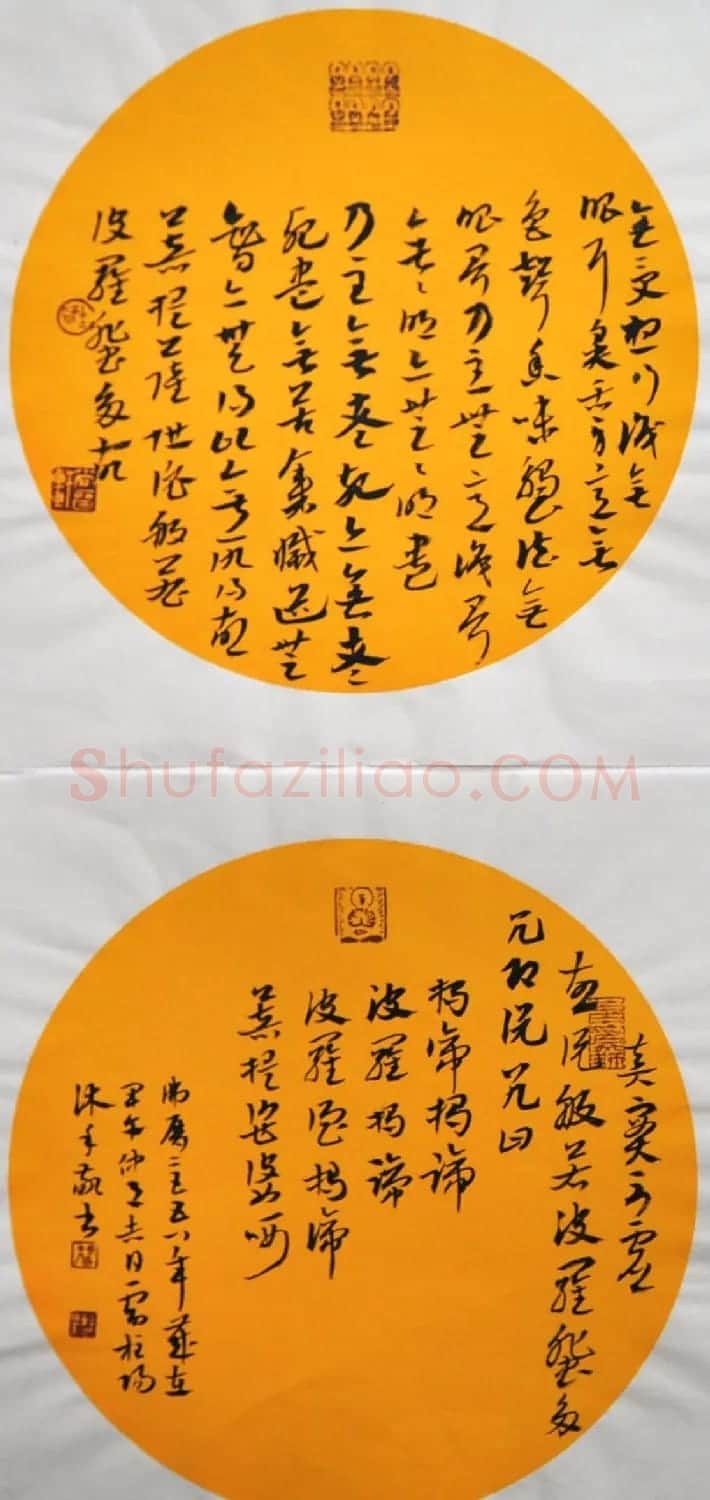 無受想行識無
眼耳鼻舌身意無
色聲香味觸法無
眼界乃至無意識界
無無明亦無無明盡
乃至無老死亦無老
死盡無苦集滅道無
智亦無得以無所得故
菩提薩埵依般若
波羅蜜多故
Shufaziliao.COM
真實不虛
故說般若波羅蜜多
咒即說咒曰
揭諦揭諦
波羅揭諦
波羅僧揭諦
菩提薩婆訶
佛曆二五五八年歲在
甲午仲
沐手敬書